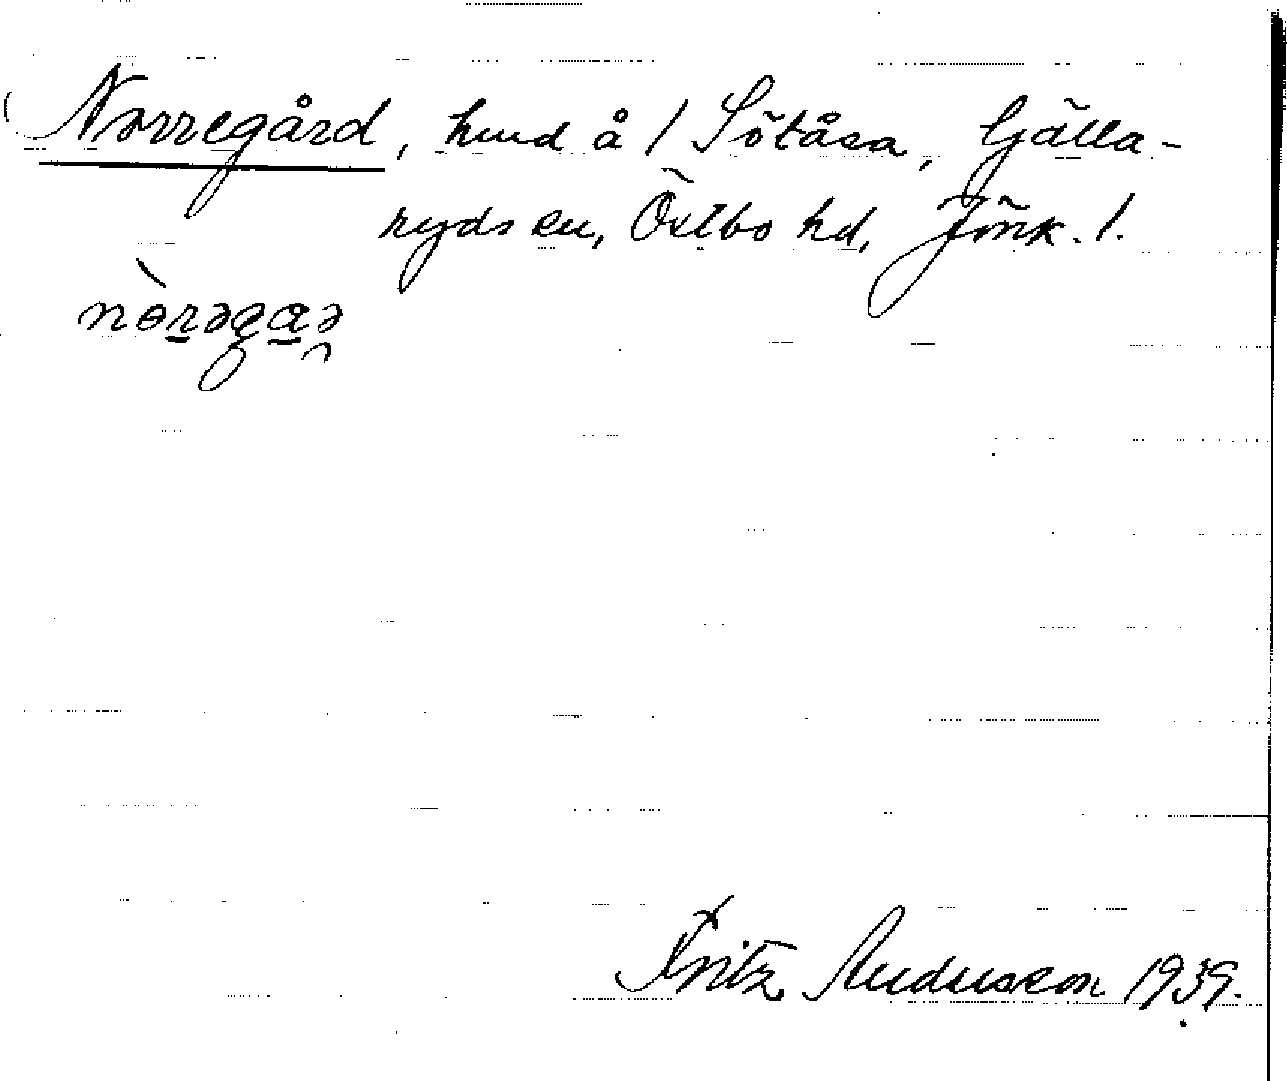 Norregård, hmd å / Sötåsa, Gälla-
ryds sn, Östbo hd, Jönk. l.
nòrəgaə̯
Fritz Andersson 1939.